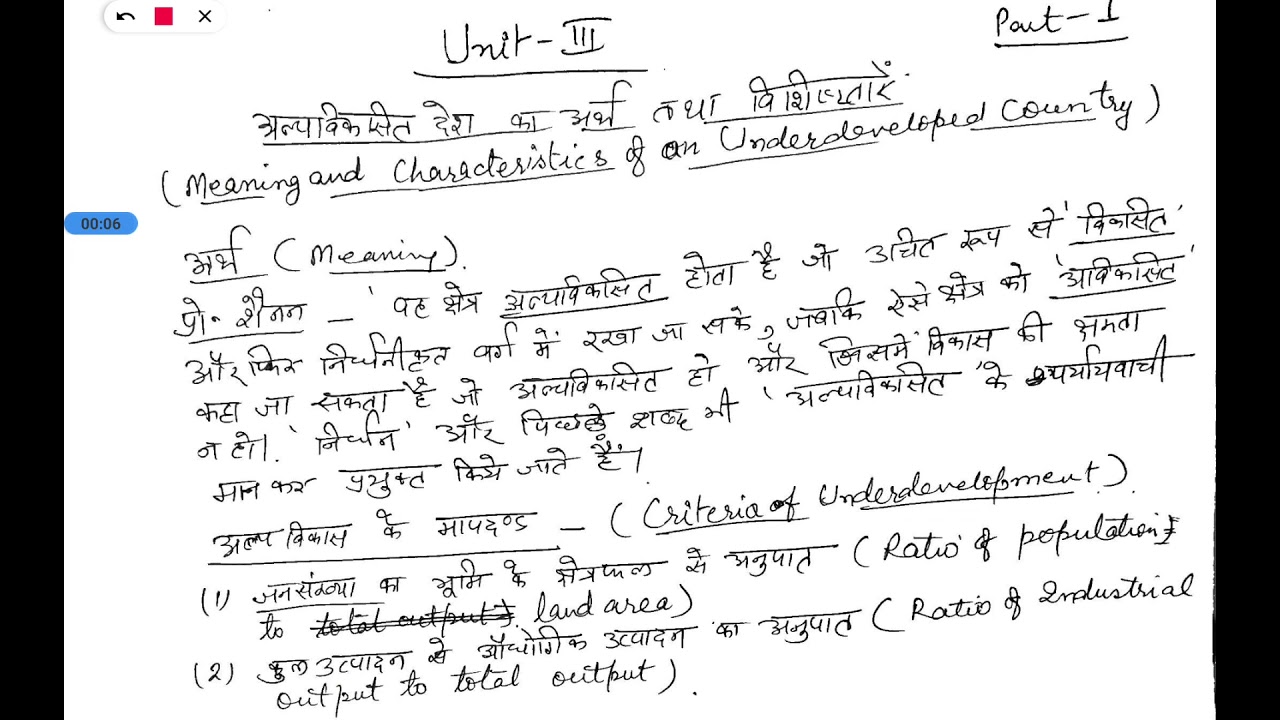 Unit-III
Part-I
अल्पविकसित देश का अर्थ तथा विशिष्टताएँ
(Meaning and Characteristics of an Underdeveloped Country)
00:06
अर्थ (Meaning).
प्रो॰ शैनन – 'वह क्षेत्र अल्पविकसित होता है जो उचित रूप से 'विकसित'
और फिर निर्धनीकृत वर्ग में रखा जा सके, जबकि ऐसे क्षेत्र को 'अविकसित'
कहा जा सकता है जो अल्पविकसित हो और जिसमें विकास की क्षमता
न हो। 'निर्धन' और पिछड़े शब्द भी 'अल्पविकसित' के पर्यायवाची
मान कर प्रयुक्त किये जाते हैं।
अल्प विकास के मापदण्ड – (Criteria of Underdevelopment)
(1) जनसंख्या का भूमि के क्षेत्रफल से अनुपात (Ratio of population
to total output). land area)
(2) कुल उत्पादन से औद्योगिक उत्पादन का अनुपात (Ratio of Industrial
output to total output).